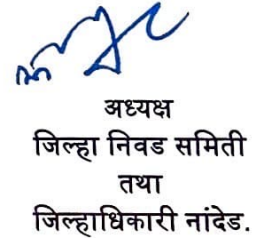 अध्यक्ष
जिल्हा निवड समिती
तथा
जिल्हाधिकारी नांदेड.